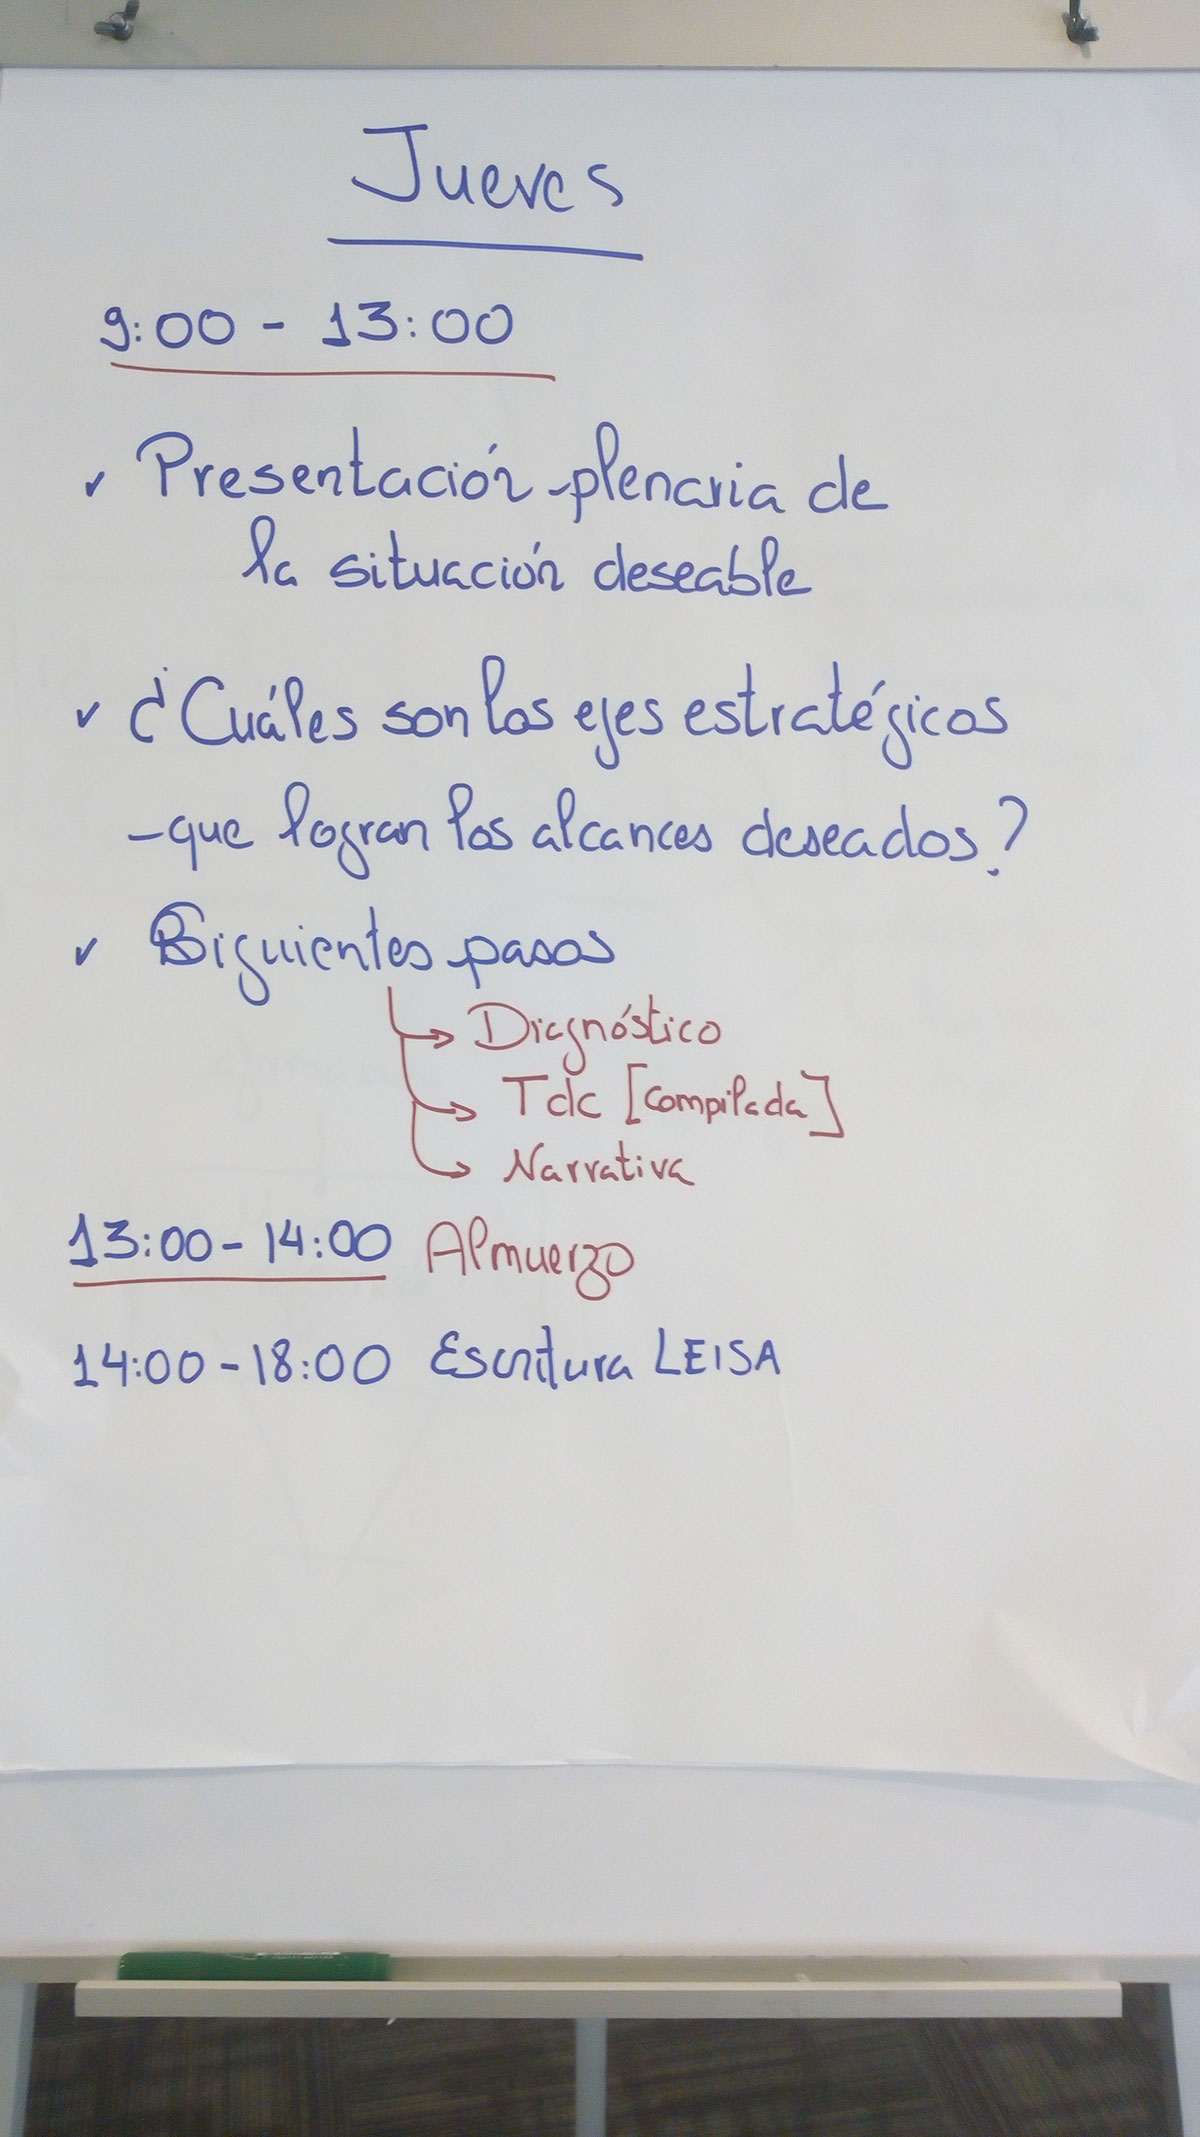 Jueves
9:00 - 13:00
✓ Presentación plenaria de
la situación deseable
✓ ¿Cuáles son los ejes estratégicos
que logran los alcances deseados?
✓ Siguientes pasos
→ Diagnóstico
→ Tdc [compilada]
→ Narrativa
13:00 - 14:00 Almuerzo
14:00 - 18:00 Escritura LEISA